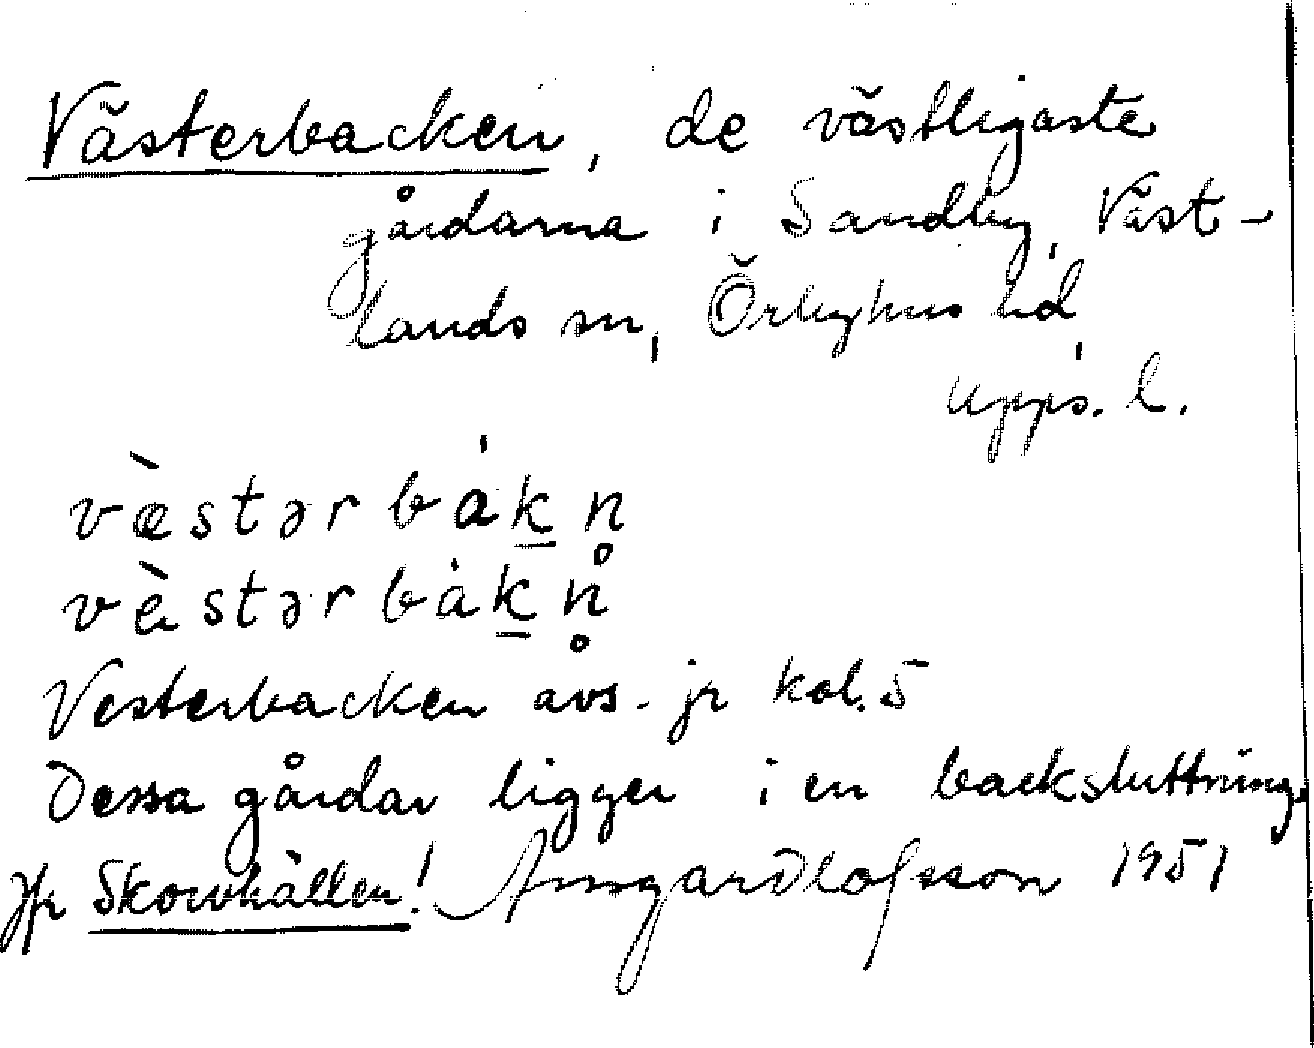 Västerbacken, de västligaste
gårdarna i Sandby, Väst-
lands sn, Örbyhus hd,
Upps. l.
væ̀stərbákn̥
vὲstərbàkn̥
Vesterbacken avs. jr kol. 5
Dessa gårdar ligger i en backsluttning.
Jfr Skowhällen! Amgard Olofsson 1951